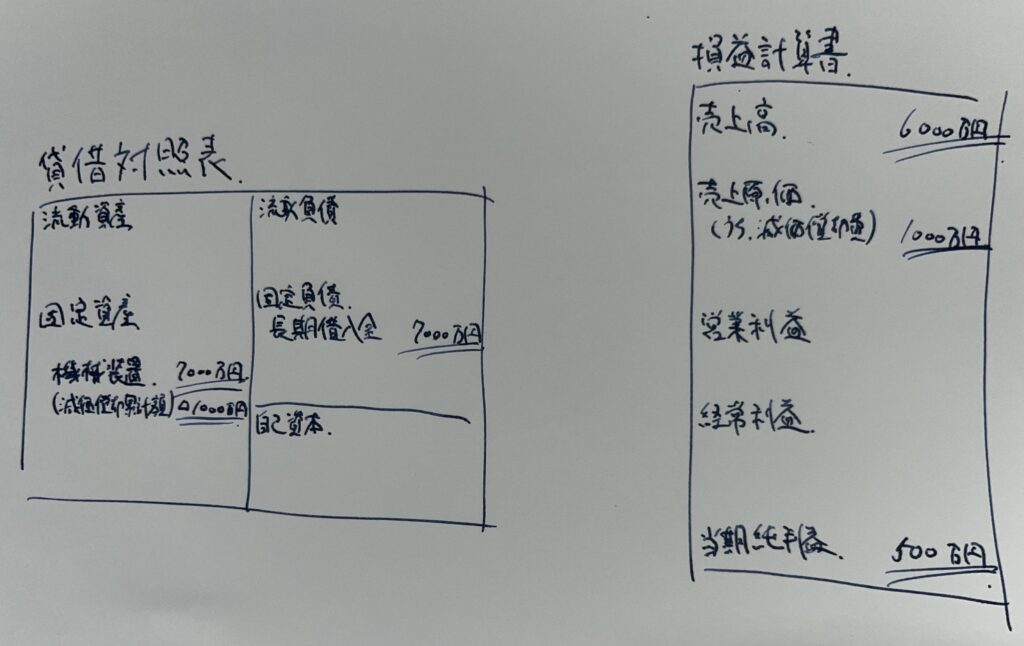 貸借対照表.
流動資産
固定資産
機械装置. 7000万円
(減価償却累計額) △1000万円
流動負債
固定負債.
長期借入金 7000万円
自己資本.
損益計算書.
売上高. 6000万円
売上原価.
(うち.減価償却費) 1000万円
営業利益
経常利益.
当期純利益. 500万円